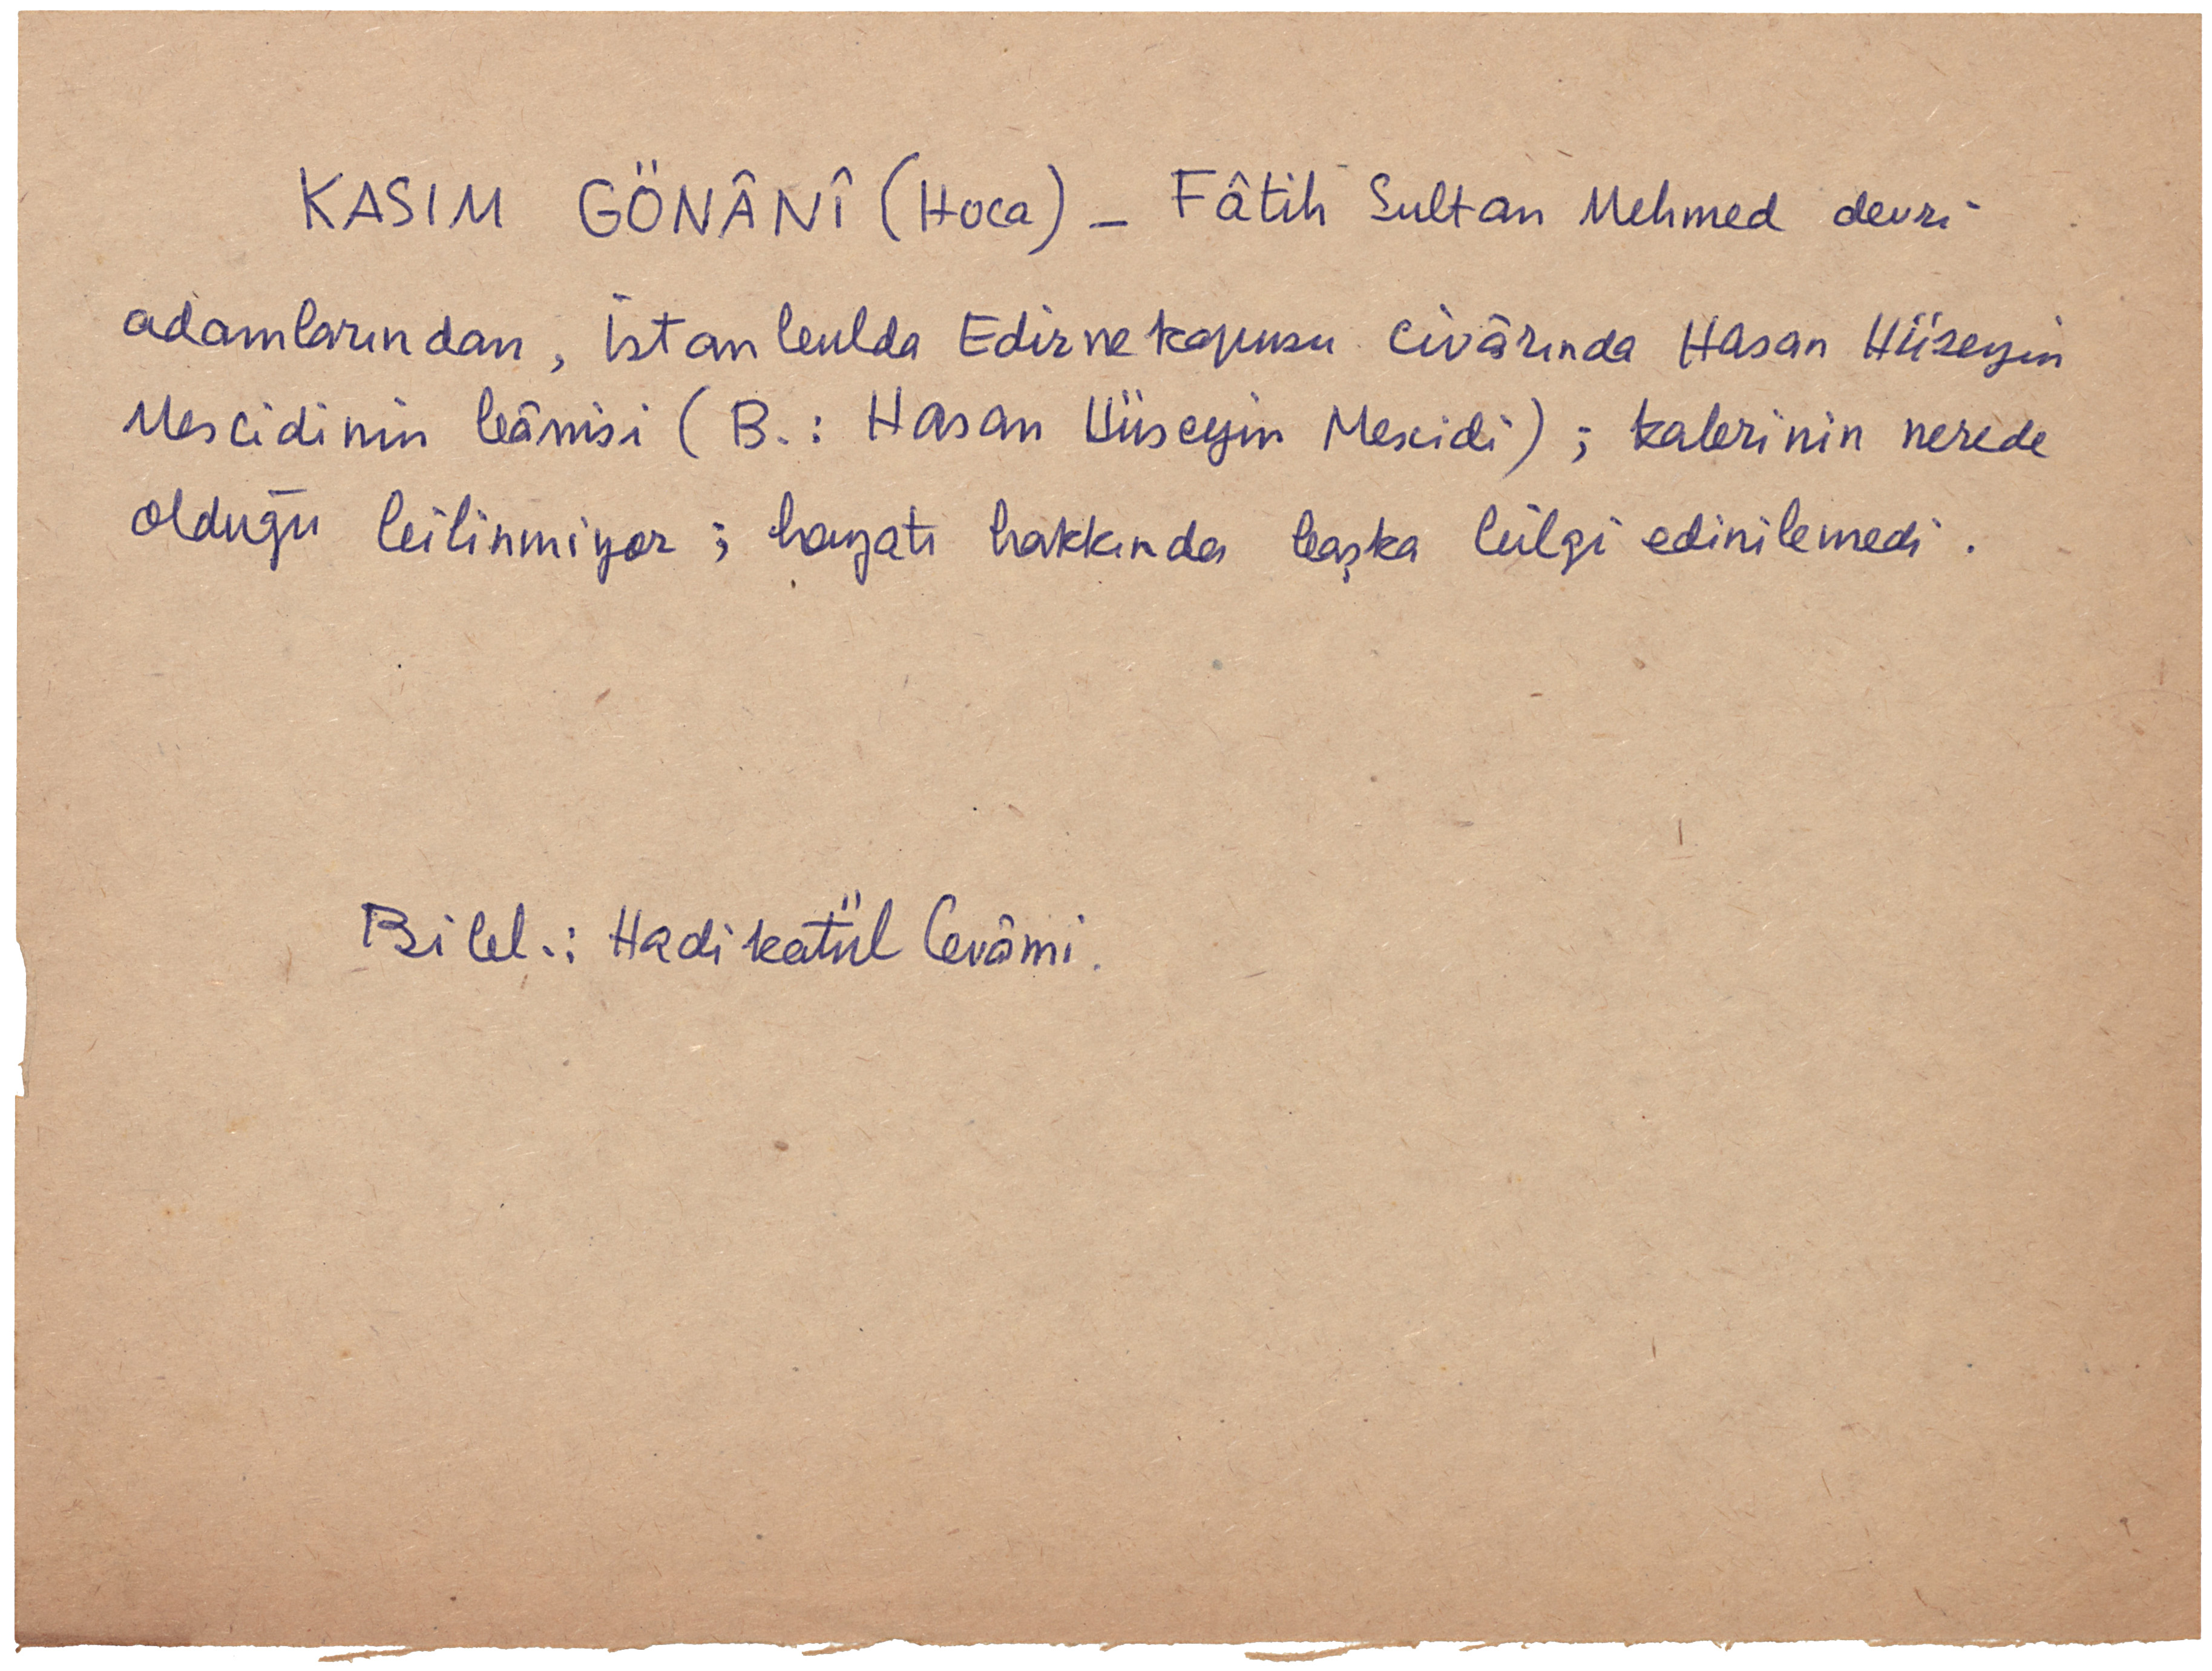 KASIM GÖNÂNÎ (Hoca) – Fâtih Sultan Mehmed devri
adamlarından, İstanbulda Edirnekapusu civârında Hasan Hüseyin
Mescidinin bânisi (B.: Hasan Hüseyin Mescidi); kabrinin nerede
olduğu bilinmiyor; hayatı hakkında başka bilgi edinilemedi.
Bibl.: Hadikatül Cevâmi.